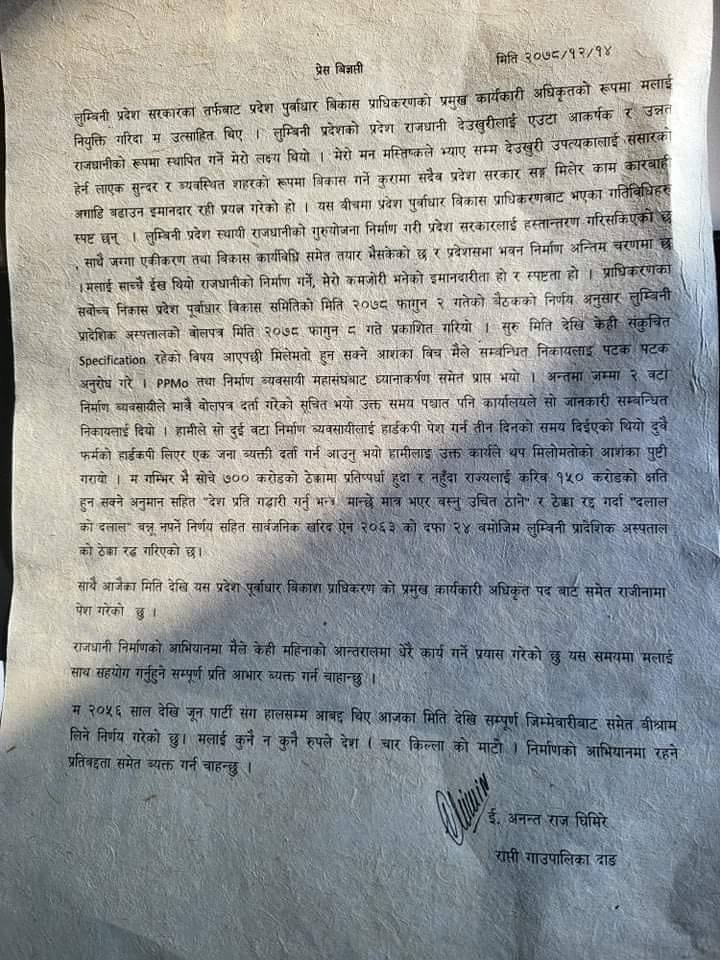 मिति २०७८/१२/१४
प्रेस बिज्ञप्ती
लुम्बिनी प्रदेश सरकारका तर्फबाट प्रदेश पुर्वाधार बिकास प्राधिकरणको प्रमुख कार्यकारी अधिकृतको रूपमा मलाई
नियुक्ति गरिदा म उत्साहित थिए । लुम्बिनी प्रदेशको प्रदेश राजधानी देउखुरीलाई एउटा आकर्षक र उन्नत
राजधानीको रूपमा स्थापित गर्ने मेरो लक्ष्य थियो । मेरो मन मस्तिष्कले भ्याए सम्म देउखुरी उपत्यकालाई संसारको
हेर्न लाएक सुन्दर र ब्यवस्थित शहरको रूपमा विकास गर्ने कुरामा सदैव प्रदेश सरकार सङ्ग मिलेर काम कारबाही
अगाडि बढाउन इमानदार रही प्रयत्न गरेको हो । यस बीचमा प्रदेश पुर्वाधार बिकास प्राधिकरणबाट भएका गतिबिधिहरु
स्पष्ट छन् । लुम्बिनी प्रदेश स्थायी राजधानीको गुरुयोजना निर्माण गरी प्रदेश सरकारलाई हस्तान्तरण गरिसकिएको छ
, साथै जग्गा एकीकरण तथा बिकास कार्यबिधि समेत तयार भैसकेको छ र प्रदेशसभा भवन निर्माण अन्तिम चरणमा छ
।मलाई साच्चै ईख थियो राजधानीको निर्माण गर्ने, मेरो कमजोरी भनेको इमानदारीता हो र स्पष्टता हो । प्राधिकरणका
सवोच्च निकास प्रदेश पूर्वाधार बिकास समितिको मिति २०७८ फागुन २ गतेको बैठकको निर्णय अनुसार लुम्बिनी
प्रादेशिक अस्पत्तालको वोलपत्र मिति २०७८ फागुन ८ गते प्रकाशित गरियो । सुरु मिति देखि केही संकुचित
Specification रहेको विषय आएपछी मिलेमतो हुन सक्ने आशंका विच मैले सम्वन्धित निकायलाइ पटक पटक
अनुरोध गरे । PPMo तथा निर्माण ब्यवसायी महासंघबाट ध्यानाकर्षण समेत प्राप्त भयो । अन्तमा जम्मा २ वटा
निर्माण ब्यवसायीले मात्रै वोलपत्र दर्ता गरेको सुचित भयो उक्त समय पश्चात पनि कार्यालयले सो जानकारी सम्बन्धित
निकायलाई दियो । हामीले सो दुई वटा निर्माण ब्यवसायीलाई हार्डकपी पेश गर्न तीन दिनको समय दिईएको थियो दुवै
फर्मको हार्डकपी लिएर एक जना ब्यक्ती दर्ता गर्न आउनु भयो हामीलाइ उक्त कार्यले थप मिलोमतोको आशंका पुष्टी
गरायो । म गम्भिर भै सोचे ७०० करोडको ठेक्कामा प्रतिष्पर्धा हुदा र नहुँदा राज्यलाई करिव १५० करोडको क्षति
हुन सक्ने अनुमान सहित "देश प्रति गद्दारी गर्नु भन्दा मान्छे मात्र भएर बस्नु उचित ठाने" र ठेक्का रद्द गर्दा "दलाल
को दलाल" बन्नू नपर्ने निर्णय सहित सार्वजनिक खरिद ऐन २०६३ को दफा २४ बमोजिम लुम्बिनी प्रादेशिक अस्पताल
को ठेक्का रद्ध गरिएको छ।
साथै आजैका मिति देखि यस प्रदेश पूर्वाधार बिकाश प्राधिकरण को प्रमुख कार्यकारी अधिकृत पद बाट समेत राजीनामा
पेश गरेको छु ।
राजधानी निर्माणको आभियानमा मैले केही महिनाको आन्तरालमा धेरै कार्य गर्ने प्रयास गरेको छु यस समयमा मलाई
साथ सहयोग गर्नुहुने सम्पूर्ण प्रति आभार ब्यक्त गर्न चाहान्छु ।
म २०५६ साल देखि जून पार्टी संग हालसम्म आबद्द थिए आजका मिति देखि सम्पूर्ण जिम्मेबारीबाट समेत बीश्राम
लिने निर्णय गरेको छु। मलाई कुनै न कुनै रुपले देश ( चार किल्ला को माटो ) निर्माणको आभियानमा रहने
प्रतिबद्दता समेत ब्यक्त गर्न चाहन्छु ।
ई. अनन्त राज घिमिरे
राप्ती गाउपालिका दाङ